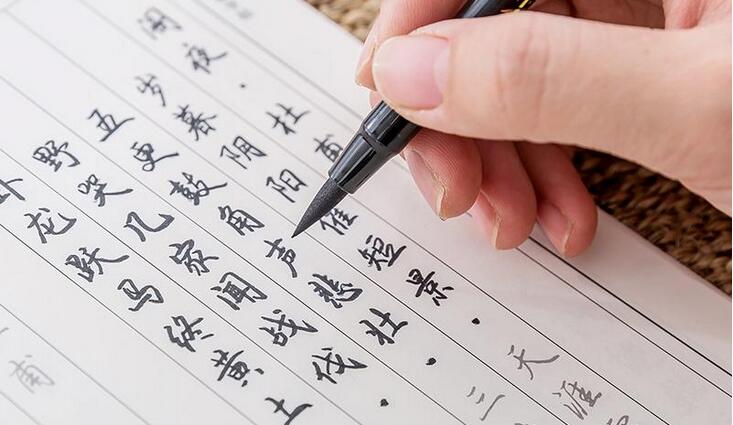 阁夜·杜甫
岁暮阴阳催短景·天涯
五更鼓角声悲壮·三
野哭几家闻战伐·
龙跃马终黄土
甫